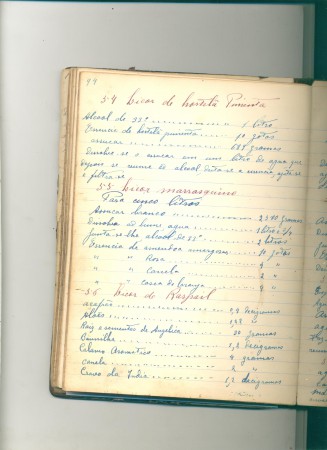 94
54 Licor de hortelã Pimenta
Alcool de 35º 1 litro
Essencia de hortelã pimenta 10 gotas
assucar 685 gramas
Dissolve-se o assucar em um litro de agua que
depois se reune ao alcool junta-se a essencia agita-se
e filtra-se
55 Licor marrasquino
Para cinco litros
Assucar branco 2240 gramas
Dissolva em lume agua
Junta-se-lhe alcool 35º 2 litros
Essencia de amendoa amargas 10 gotas
" " Rosa 4 "
" " Canela 2 "
" " Casca de laranja 4 "
56 Licor de Raspail
açafrão decigramas
Aloes "
Raiz e sementes de Angelica 20 gramas
Baunilha decigramas
Calamo Aromatico gramas
Canela 2 "
decigramas